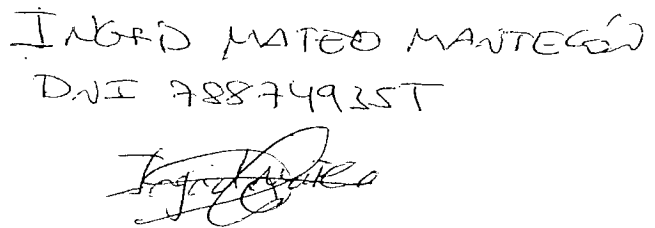 INGRID MATEO MANTECÓN
DNI 78874935T
Ingrid Mateo